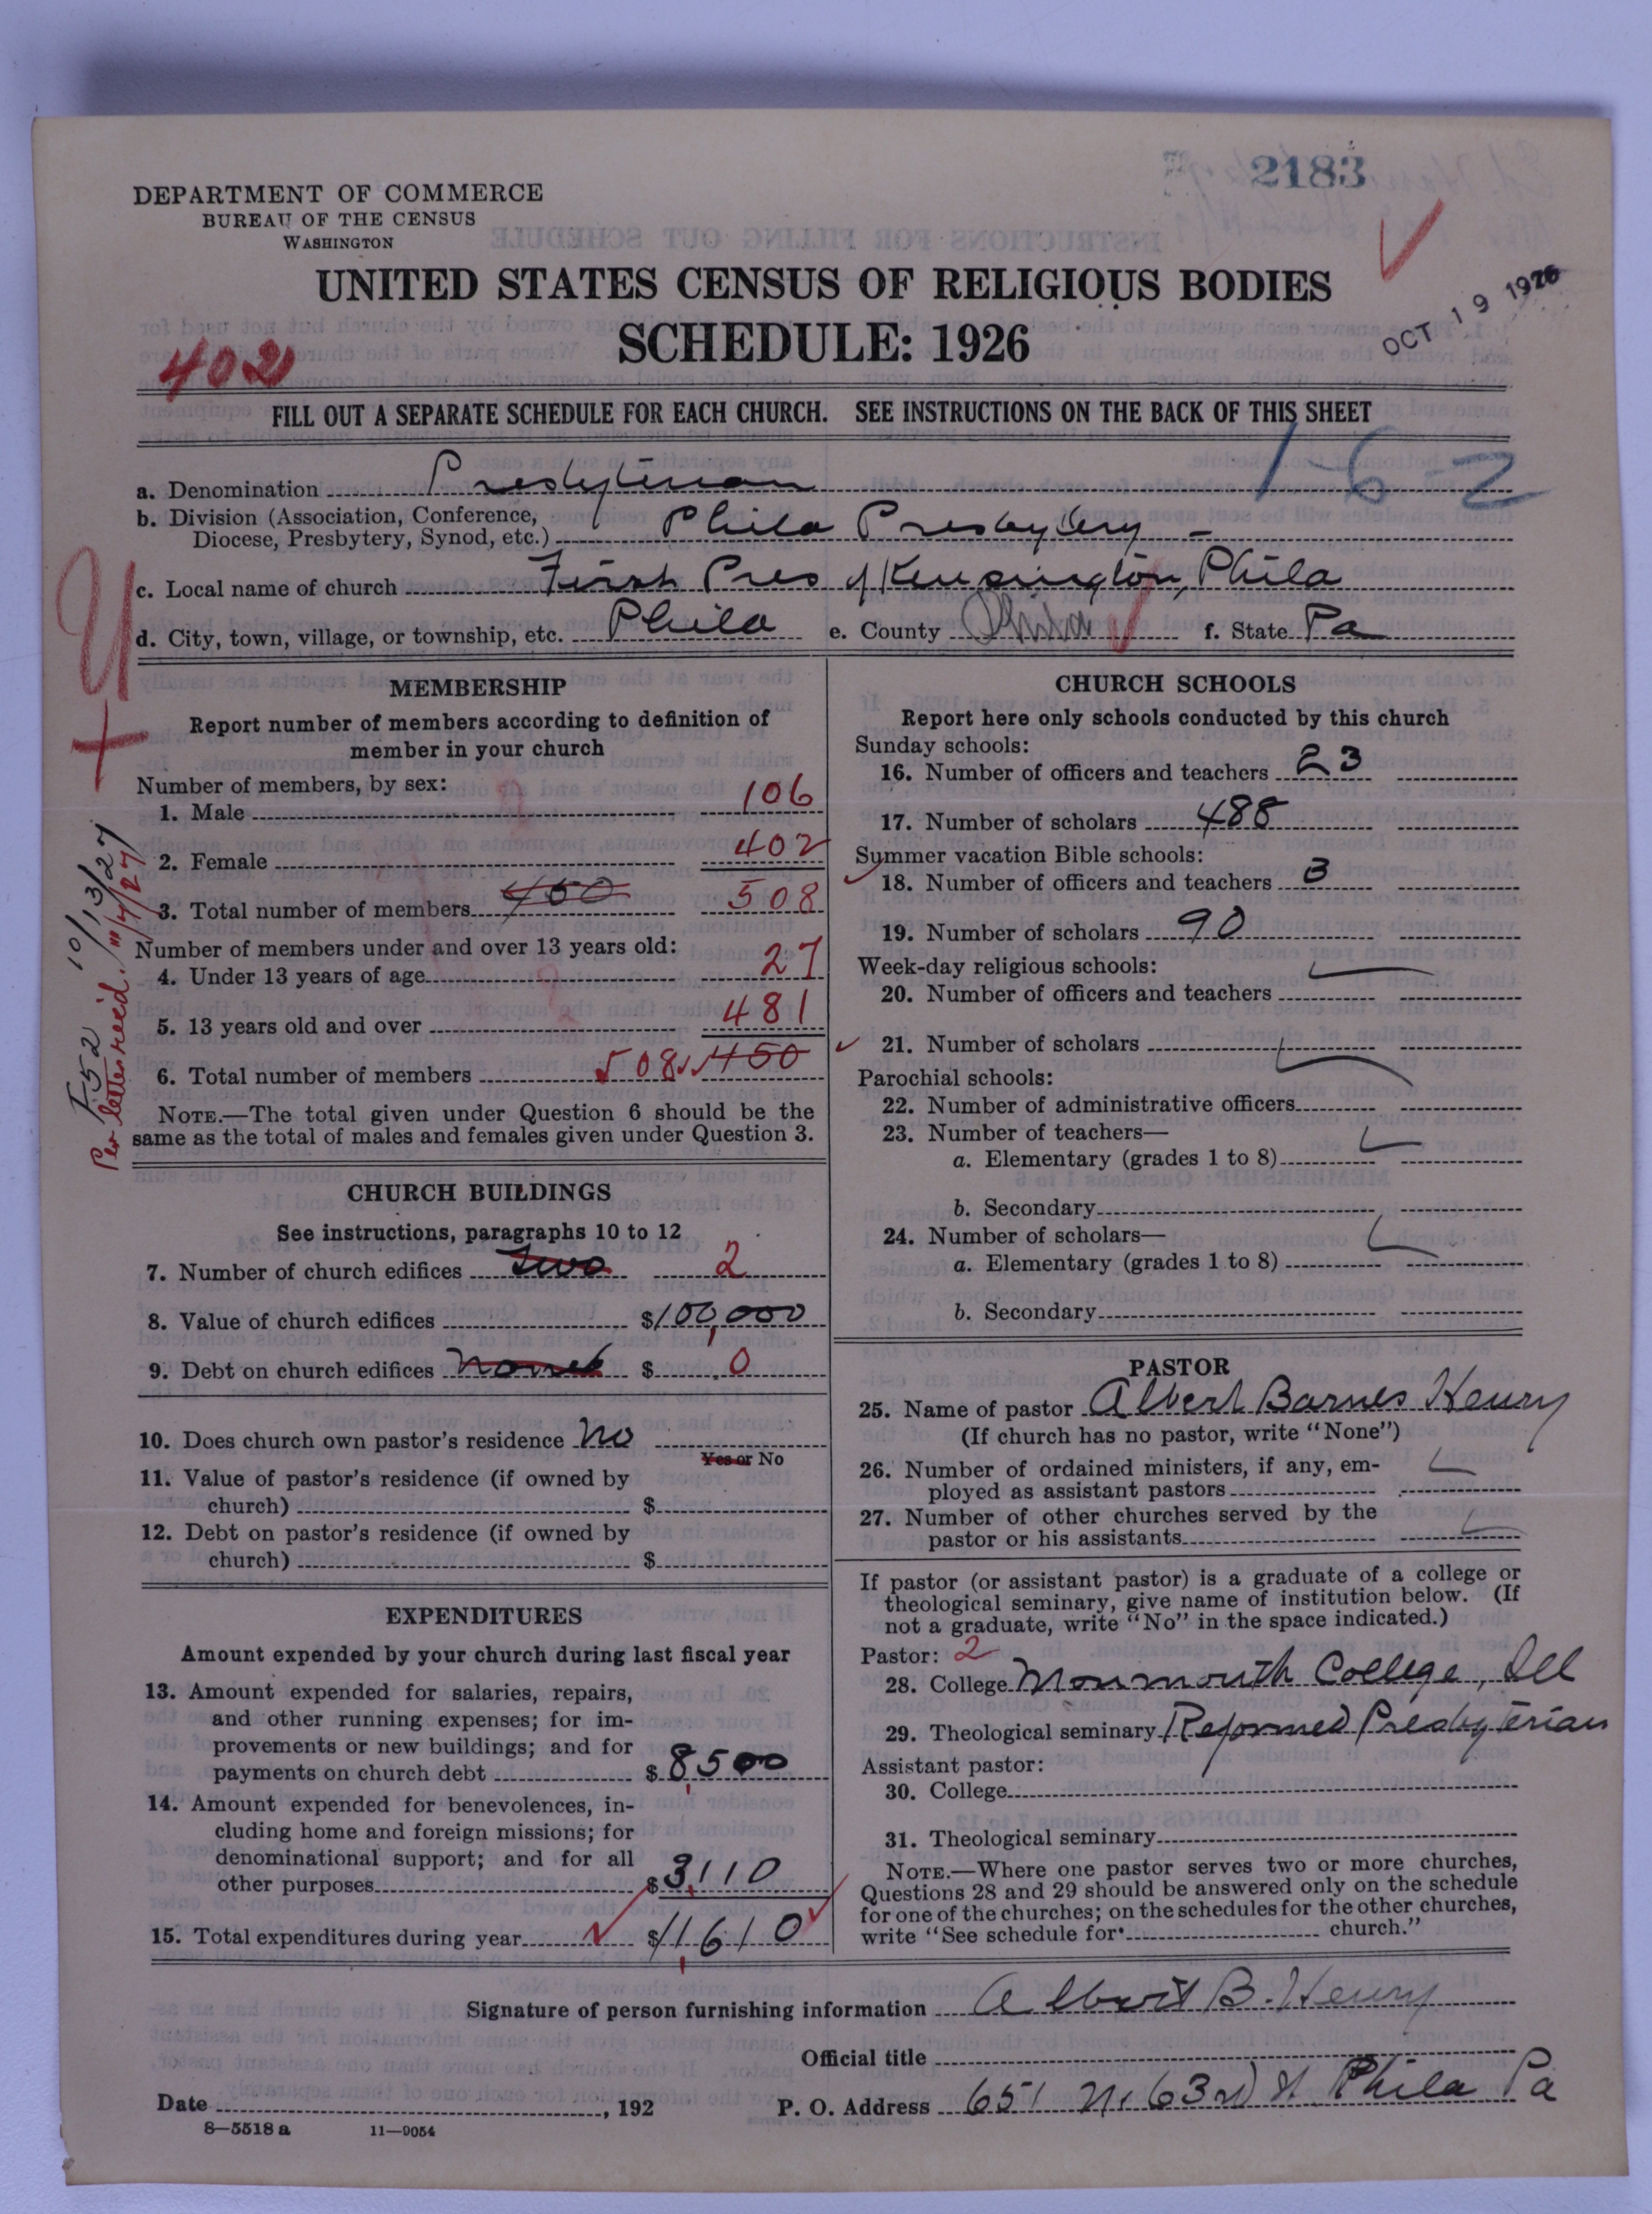 2183
DEPARTMENT OF COMMERCE
BUREAU OF THE CENSUS
WASHINGTON
UNITED STATES CENSUS OF RELIGIOUS BODIES
SCHEDULE: 1926
OCT 19 1926
402
FILL OUT A SEPARATE SCHEDULE FOR EACH CHURCH. SEE INSTRUCTIONS ON THE BACK OF THIS SHEET
1-6-2
a. Denomination Presbyterian
b. Division (Association, Conference, Diocese, Presbytery, Synod, etc.) Phila Presbytery -
c. Local name of church First Pres of Kensington, Phila
d. City, town, village, or township, etc. Phila e. County Phila f. State Pa
I52 10/13/27
Per letter rec'd. 11/4/27
MEMBERSHIP
Report number of members according to definition of
member in your church
Number of members, by sex:
1. Male 106
2. Female 402
3. Total number of members 450 508
Number of members under and over 13 years old:
4. Under 13 years of age 27
5. 13 years old and over 481
6. Total number of members 508 450
NOTE.—The total given under Question 6 should be the
same as the total of males and females given under Question 3.
CHURCH BUILDINGS
See instructions, paragraphs 10 to 12
7. Number of church edifices two 2
8. Value of church edifices $100,000
9. Debt on church edifices $ 0
10. Does church own pastor's residence no
Yes or No
11. Value of pastor's residence (if owned by
church) $
12. Debt on pastor's residence (if owned by
church) $
EXPENDITURES
Amount expended by your church during last fiscal year
13. Amount expended for salaries, repairs,
and other running expenses; for im-
provements or new buildings; and for
payments on church debt $ 8,500
14. Amount expended for benevolences, in-
cluding home and foreign missions; for
denominational support; and for all
other purposes $ 3,110
15. Total expenditures during year $ 11,610
CHURCH SCHOOLS
Report here only schools conducted by this church
Sunday schools:
16. Number of officers and teachers 23
17. Number of scholars 488
Summer vacation Bible schools:
18. Number of officers and teachers 3
19. Number of scholars 90
Week-day religious schools:
20. Number of officers and teachers
21. Number of scholars
Parochial schools:
22. Number of administrative officers
23. Number of teachers—
a. Elementary (grades 1 to 8)
b. Secondary
24. Number of scholars—
a. Elementary (grades 1 to 8)
b. Secondary
PASTOR
25. Name of pastor Albert Barnes Henry
(If church has no pastor, write "None")
26. Number of ordained ministers, if any, em-
ployed as assistant pastors
27. Number of other churches served by the
pastor or his assistants
If pastor (or assistant pastor) is a graduate of a college or
theological seminary, give name of institution below. (If
not a graduate, write "No" in the space indicated.)
Pastor: 2
28. College Monmouth College, Ill
29. Theological seminary Reformed Presbyterian
Assistant pastor:
30. College
31. Theological seminary
NOTE.—Where one pastor serves two or more churches,
Questions 28 and 29 should be answered only on the schedule
for one of the churches; on the schedules for the other churches,
write "See schedule for church."
Signature of person furnishing information Albert B. Henry
Official title
Date , 192 P. O. Address 651 N. 63rd St Phila Pa
8—5518 a 11—9054